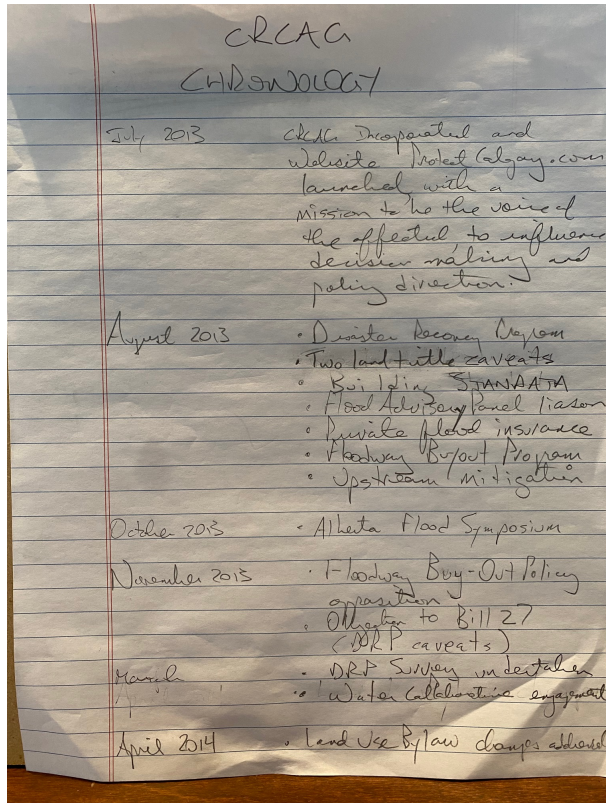 CRCAG
CHRONOLOGY
July 2013 CRCAG Incorporated and
website ProtectCalgary.com
launched, with a
mission to be the voice of
the affected, to influence
decision making and
policy direction.
August 2013 • Disaster Recovery Program
• Two land title caveats
• Building STANDATA
• Flood Advisory Panel liason
• Private flood insurance
• Floodway Buyout Program
• Upstream mitigation
October 2013 • Alberta Flood Symposium
November 2013 • Floodway Buy-Out Policy
opposition
• Objection to Bill 27
(DRP caveats)
March • DRP Survey undertaken
• Water Collaborative engagement
April 2014 • Land Use Bylaw changes addressed